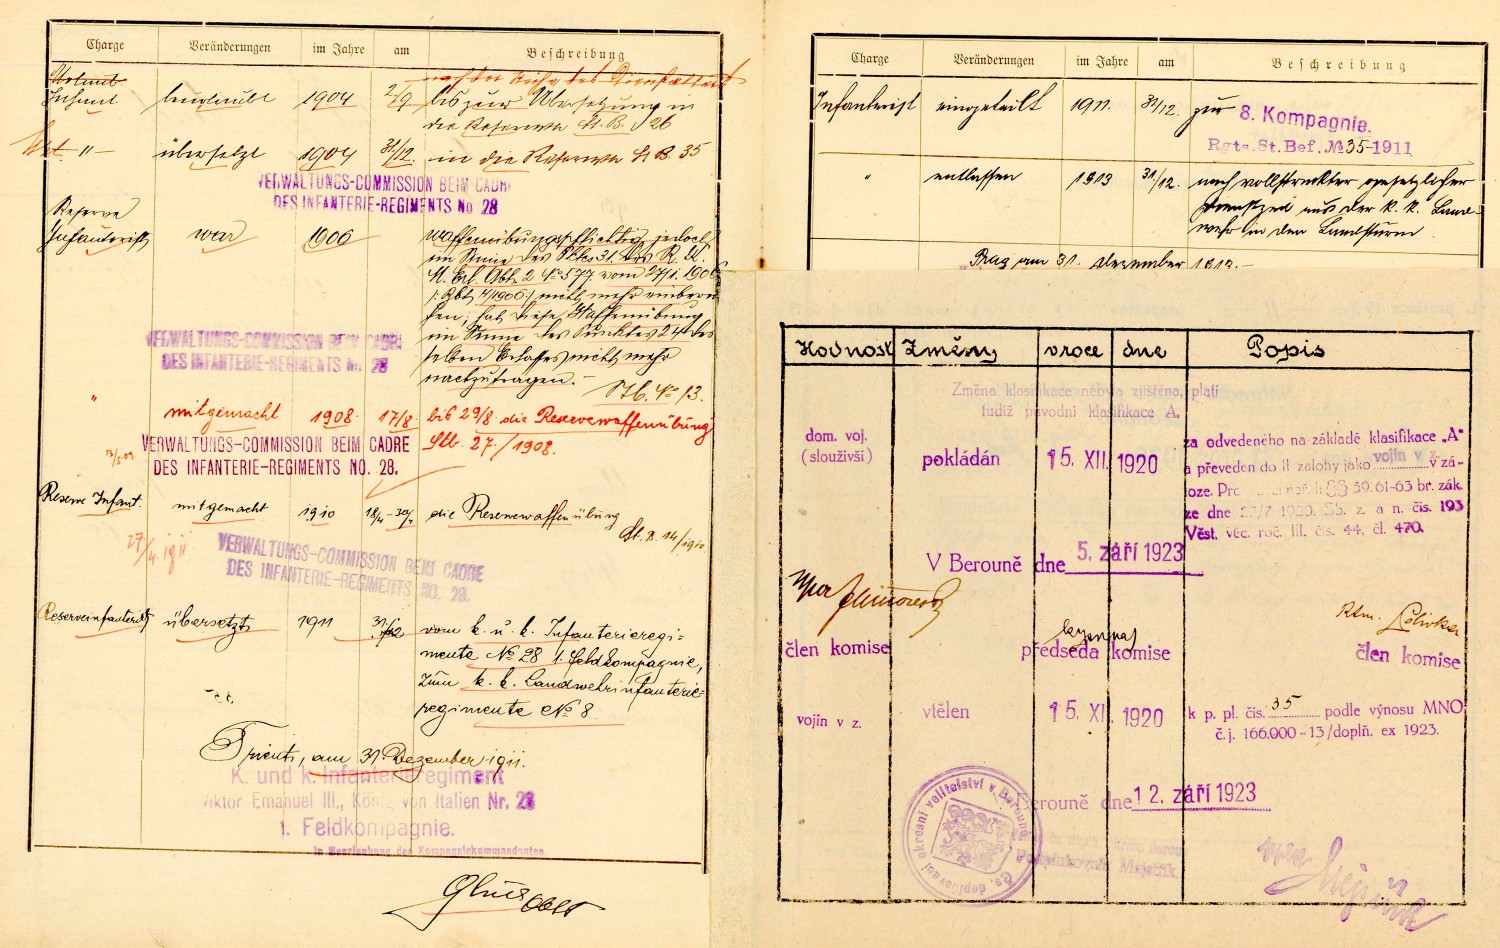 Charge Veränderungen im Jahre am Beschreibung
Infant beurlaubt 1904 2/9 bis zur Übersetzung in
die Reserve St. B. 126
" übersetzt 1904 31/12. in die Reserve St B. 35
VERWALTUNGS-COMMISSION BEIM CADRE
DES INFANTERIE-REGIMENTS No 28
Reserve
Infanterist war 1906 waffenübungspflichtig, jedoch
im Sinne des Pktes 31. des R. K.
M. Erl. Abt. 2 No 577 vom 27/1. 1906
nicht mehr einberu-
fen, hat diese Waffenübung
im Sinne des Punktes 24 des-
selben Erlasses nicht mehr
nachzutragen. –
Stb. No 13.
VERWALTUNGS-COMMISSION BEIM CADRE
DES INFANTERIE-REGIMENTS No. 28
" mitgemacht 1908 17/8. bis 29/8. die Reservewaffenübung
Stb. 27./1908.
VERWALTUNGS-COMMISSION BEIM CADRE
DES INFANTERIE-REGIMENTS NO. 28.
Reserve Infant. mitgemacht 1910 18/4 – 30/4 die Reservewaffenübung
St. B. 14/1910
27/4. 1911
VERWALTUNGS-COMMISSION BEIM CADRE
DES INFANTERIE-REGIMENTS NO. 28.
Reserveinfanterist übersetzt 1911 31/12 vom k. u. k. Infanterieregi-
mente No 28 1. Feldkompagnie,
zum k. k. Landwehrinfanterie-
regimente No 8
Trient, am 31. Dezember 1911.
K. und k. Infanterieregiment
Viktor Emanuel III., König von Italien Nr. 28
1. Feldkompagnie.
In Beurlaubung des Kompagniekommandanten.
Oblt
Charge Veränderungen im Jahre am Beschreibung
Infanterist eingeteilt 1911. 31/12. zur 8. Kompagnie.
Rgts. St. Bef. No 35-1911
" entlassen 1913 31/12. nach vollstreckter gesetzlicher
Dienstzeit aus der k. k. Land-
wehr in den Landsturm
Prag am 31. Dezember 1913. –
Hodnost Změny v roce dne Popis
Změna klasifikace nebyla zjištěna, platí
tudíž původní klasifikace A.
dom. voj.
(slouživší) pokládán 15. XII. 1920 za odvedeného na základě klasifikace „A"
a převeden do II zálohy jako vojín v z. v zá-
loze. Pr 59. 61-63 br. zák.
ze dne 20/7 1920. Sb. z. a n. čís. 193
Věst. věc. roč. III. čís. 44, čl. 470.
V Berouně dne 5. září 1923
člen komise předseda komise člen komise
vojín v z. vtělen 15. XII. 1920 k p. pl. čís. 35 podle výnosu MNO
č. j. 166.000-13/doplň. ex 1923.
Berouně dne 12. září 1923
Čs. doplňovací okresní velitelství v Berouně